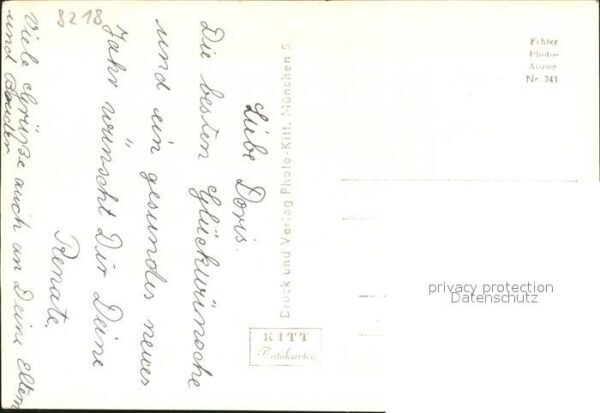 3218
Liebe Doris.
Die besten Glückwünsche
und ein gesundes neues
Jahr wünscht Dir Deine
Renate.
Viele Grüße auch an Deine Eltern
und Bruder
Druck und Verlag Photo-Kitt, München 5
KITT
Fotokarten
Echter
Photo-
Abzug
Nr. 241
privacy protection
Datenschutz